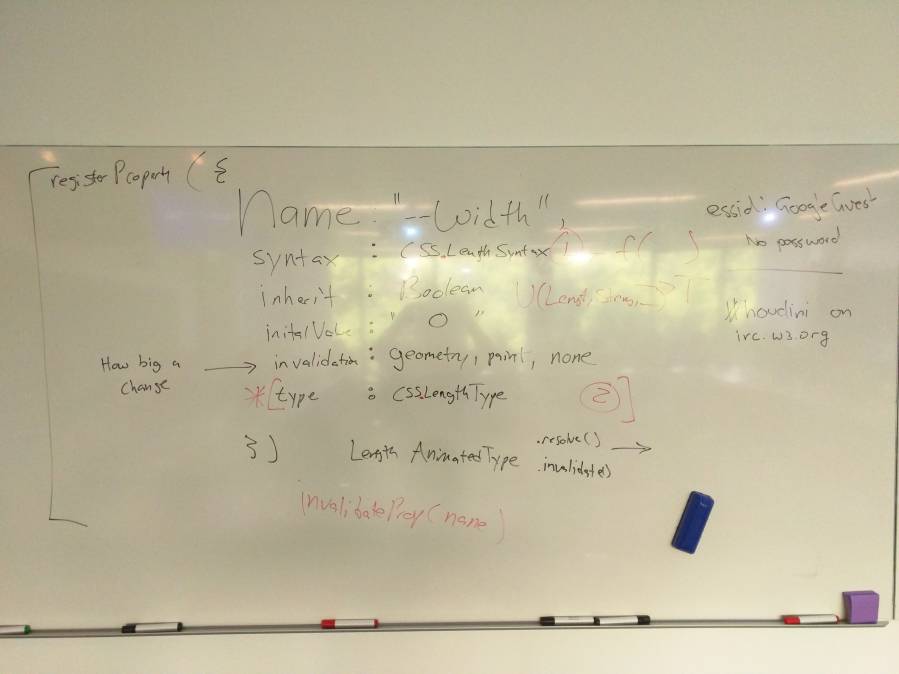 registerProperty ({
Name : "--width",
syntax : CSS.LengthSyntax (1) f( )
inherit : Boolean U(Length, String, ) T
initalValue : " 0 "
How big a
change → invalidation : geometry, paint, none
*[type : CSS.LengthType (2) ]
}) Length AnimatedType .resolve() →
.invalidate()
invalidateProp(name)
essid: GoogleGuest
No password
#houdini on
irc.w3.org